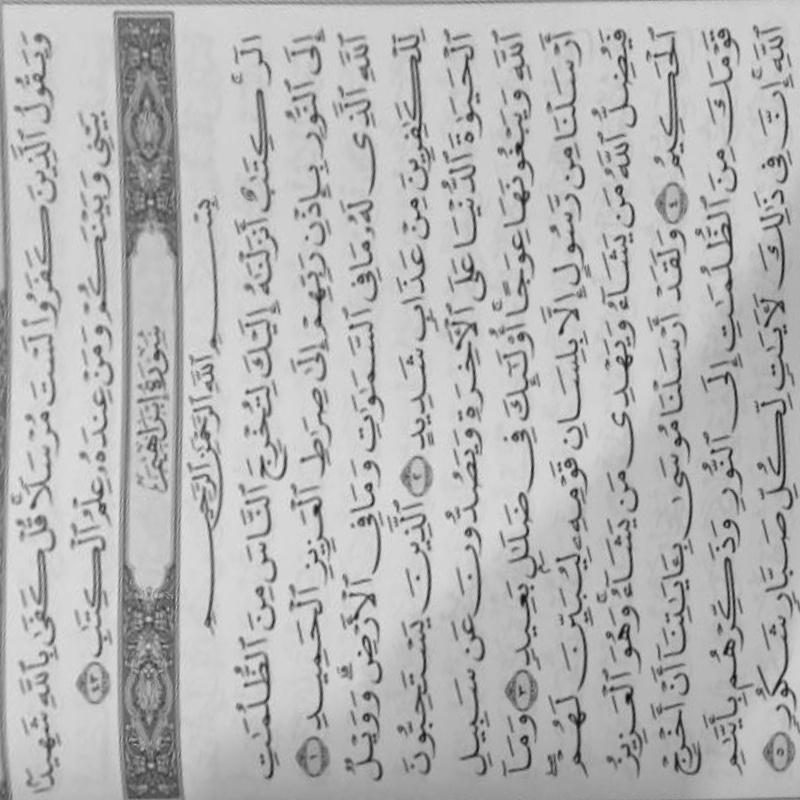 وَيَقُولُ ٱلَّذِينَ كَفَرُوا۟ لَسْتَ مُرْسَلًا ۚ قُلْ كَفَىٰ بِٱللَّهِ شَهِيدًۢا
بَيْنِى وَبَيْنَكُمْ وَمَنْ عِندَهُۥ عِلْمُ ٱلْكِتَٰبِ ٤٣
سُورَةُ إِبْرَاهِيمَ
بِسْمِ ٱللَّهِ ٱلرَّحْمَٰنِ ٱلرَّحِيمِ
الٓر ۚ كِتَٰبٌ أَنزَلْنَٰهُ إِلَيْكَ لِتُخْرِجَ ٱلنَّاسَ مِنَ ٱلظُّلُمَٰتِ
إِلَى ٱلنُّورِ بِإِذْنِ رَبِّهِمْ إِلَىٰ صِرَٰطِ ٱلْعَزِيزِ ٱلْحَمِيدِ ١
ٱللَّهِ ٱلَّذِى لَهُۥ مَا فِى ٱلسَّمَٰوَٰتِ وَمَا فِى ٱلْأَرْضِ ۗ وَوَيْلٌ
لِّلْكَٰفِرِينَ مِنْ عَذَابٍ شَدِيدٍ ٢ ٱلَّذِينَ يَسْتَحِبُّونَ
ٱلْحَيَوٰةَ ٱلدُّنْيَا عَلَى ٱلْـَٔاخِرَةِ وَيَصُدُّونَ عَن سَبِيلِ
ٱللَّهِ وَيَبْغُونَهَا عِوَجًا ۚ أُو۟لَٰٓئِكَ فِى ضَلَٰلٍۭ بَعِيدٍ ٣ وَمَآ
أَرْسَلْنَا مِن رَّسُولٍ إِلَّا بِلِسَانِ قَوْمِهِۦ لِيُبَيِّنَ لَهُمْ ۖ
فَيُضِلُّ ٱللَّهُ مَن يَشَآءُ وَيَهْدِى مَن يَشَآءُ ۚ وَهُوَ ٱلْعَزِيزُ
ٱلْحَكِيمُ ٤ وَلَقَدْ أَرْسَلْنَا مُوسَىٰ بِـَٔايَٰتِنَآ أَنْ أَخْرِجْ
قَوْمَكَ مِنَ ٱلظُّلُمَٰتِ إِلَى ٱلنُّورِ وَذَكِّرْهُم بِأَيَّىٰمِ
ٱللَّهِ ۚ إِنَّ فِى ذَٰلِكَ لَـَٔايَٰتٍ لِّكُلِّ صَبَّارٍ شَكُورٍ ٥